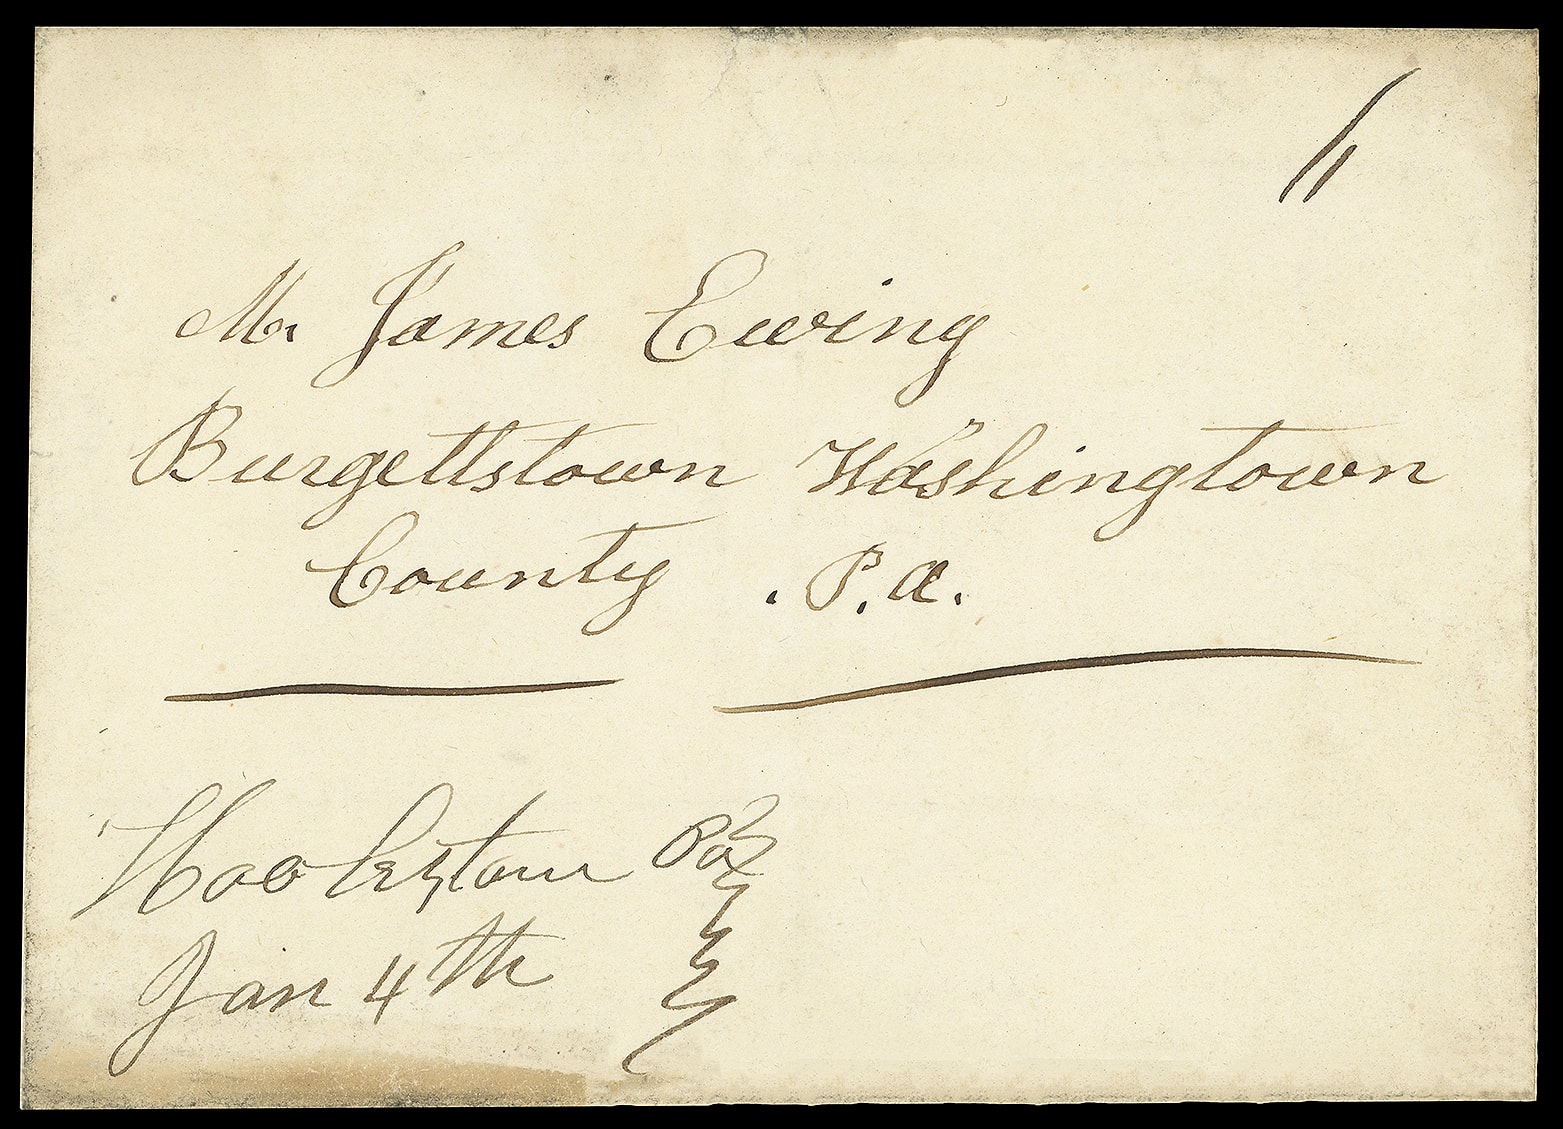 Mr James Ewing
Burgettstown Washingtown
County . P. a.
Hookstown Pa
Jan 4th